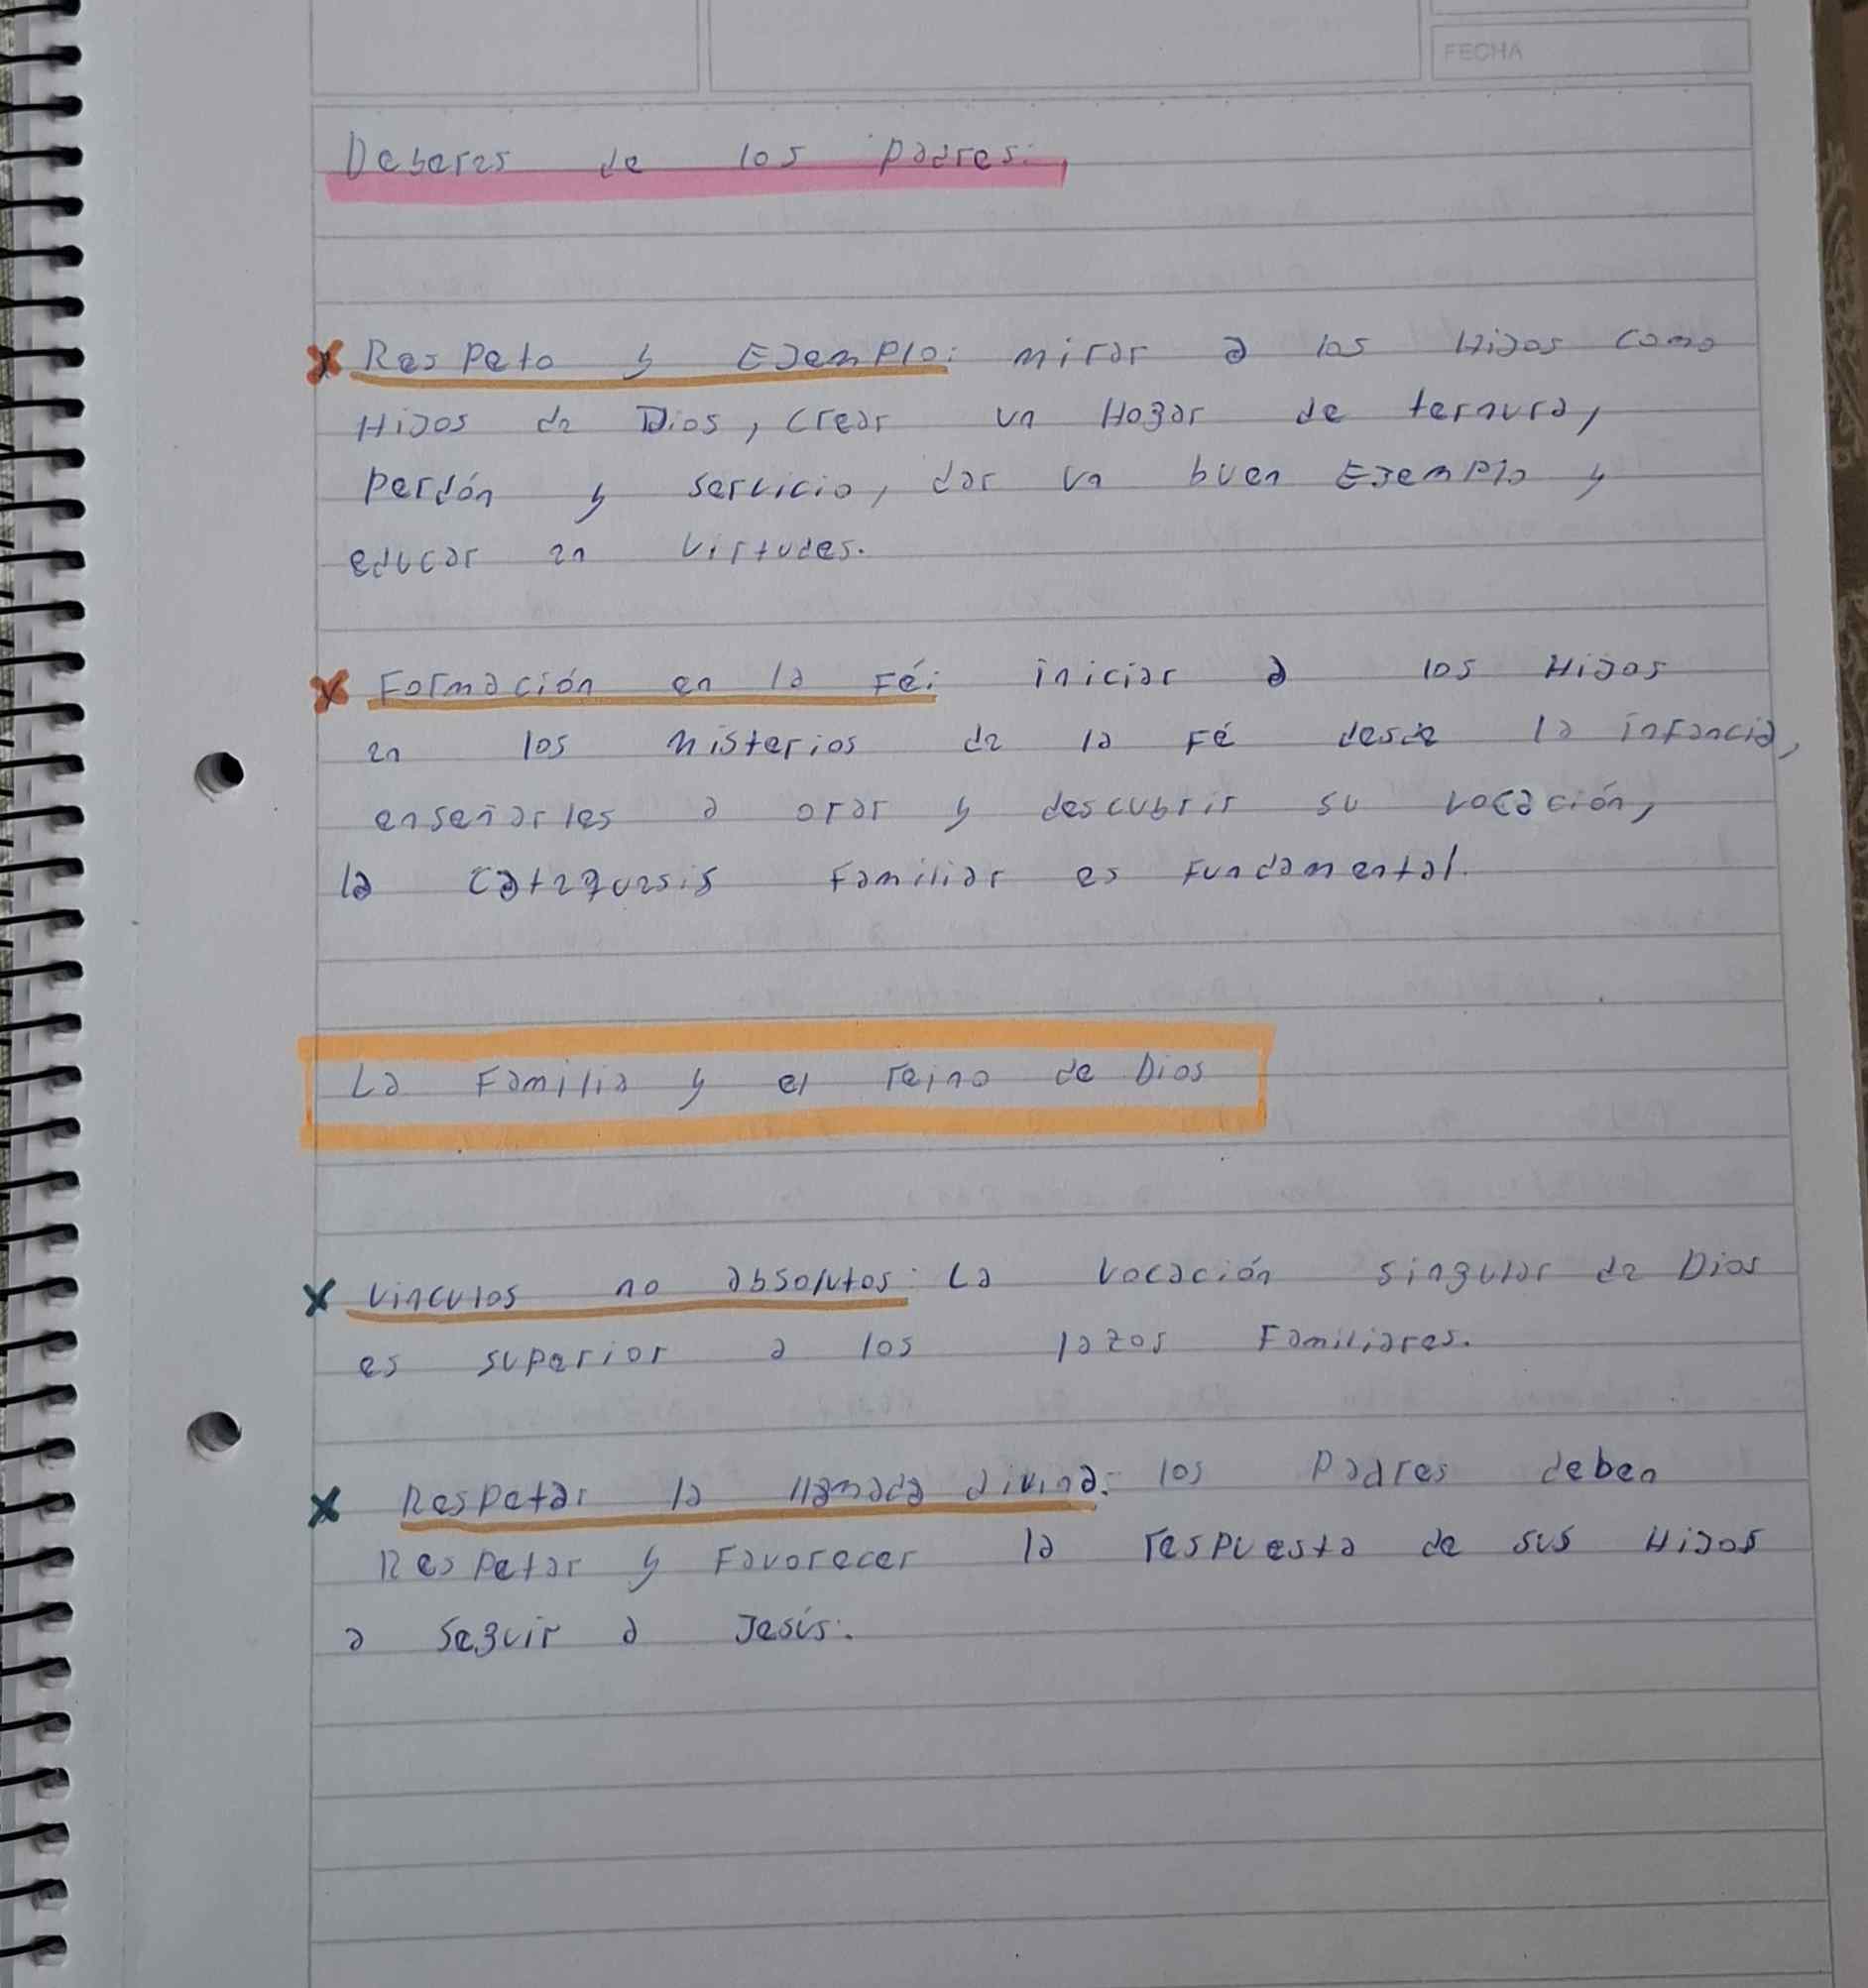 FECHA
Deberes de los padres:
x Respeto y Ejemplo: mirar a los Hijos como
Hijos de Dios, crear un Hogar de ternura,
perdón y servicio, dar un buen Ejemplo y
educar en virtudes.
x Formación en la Fé: iniciar a los Hijos
en los misterios de la Fé desde la infancia,
enseñarles a orar y descubrir su vocación,
la catequesis familiar es fundamental.
La Familia y el reino de Dios
x vinculos no absolutos: La vocación singular de Dios
es superior a los lazos Familiares.
x Respetar la llamada divina: los Padres deben
Respetar y Favorecer la respuesta de sus Hijos
a seguir a Jesús.